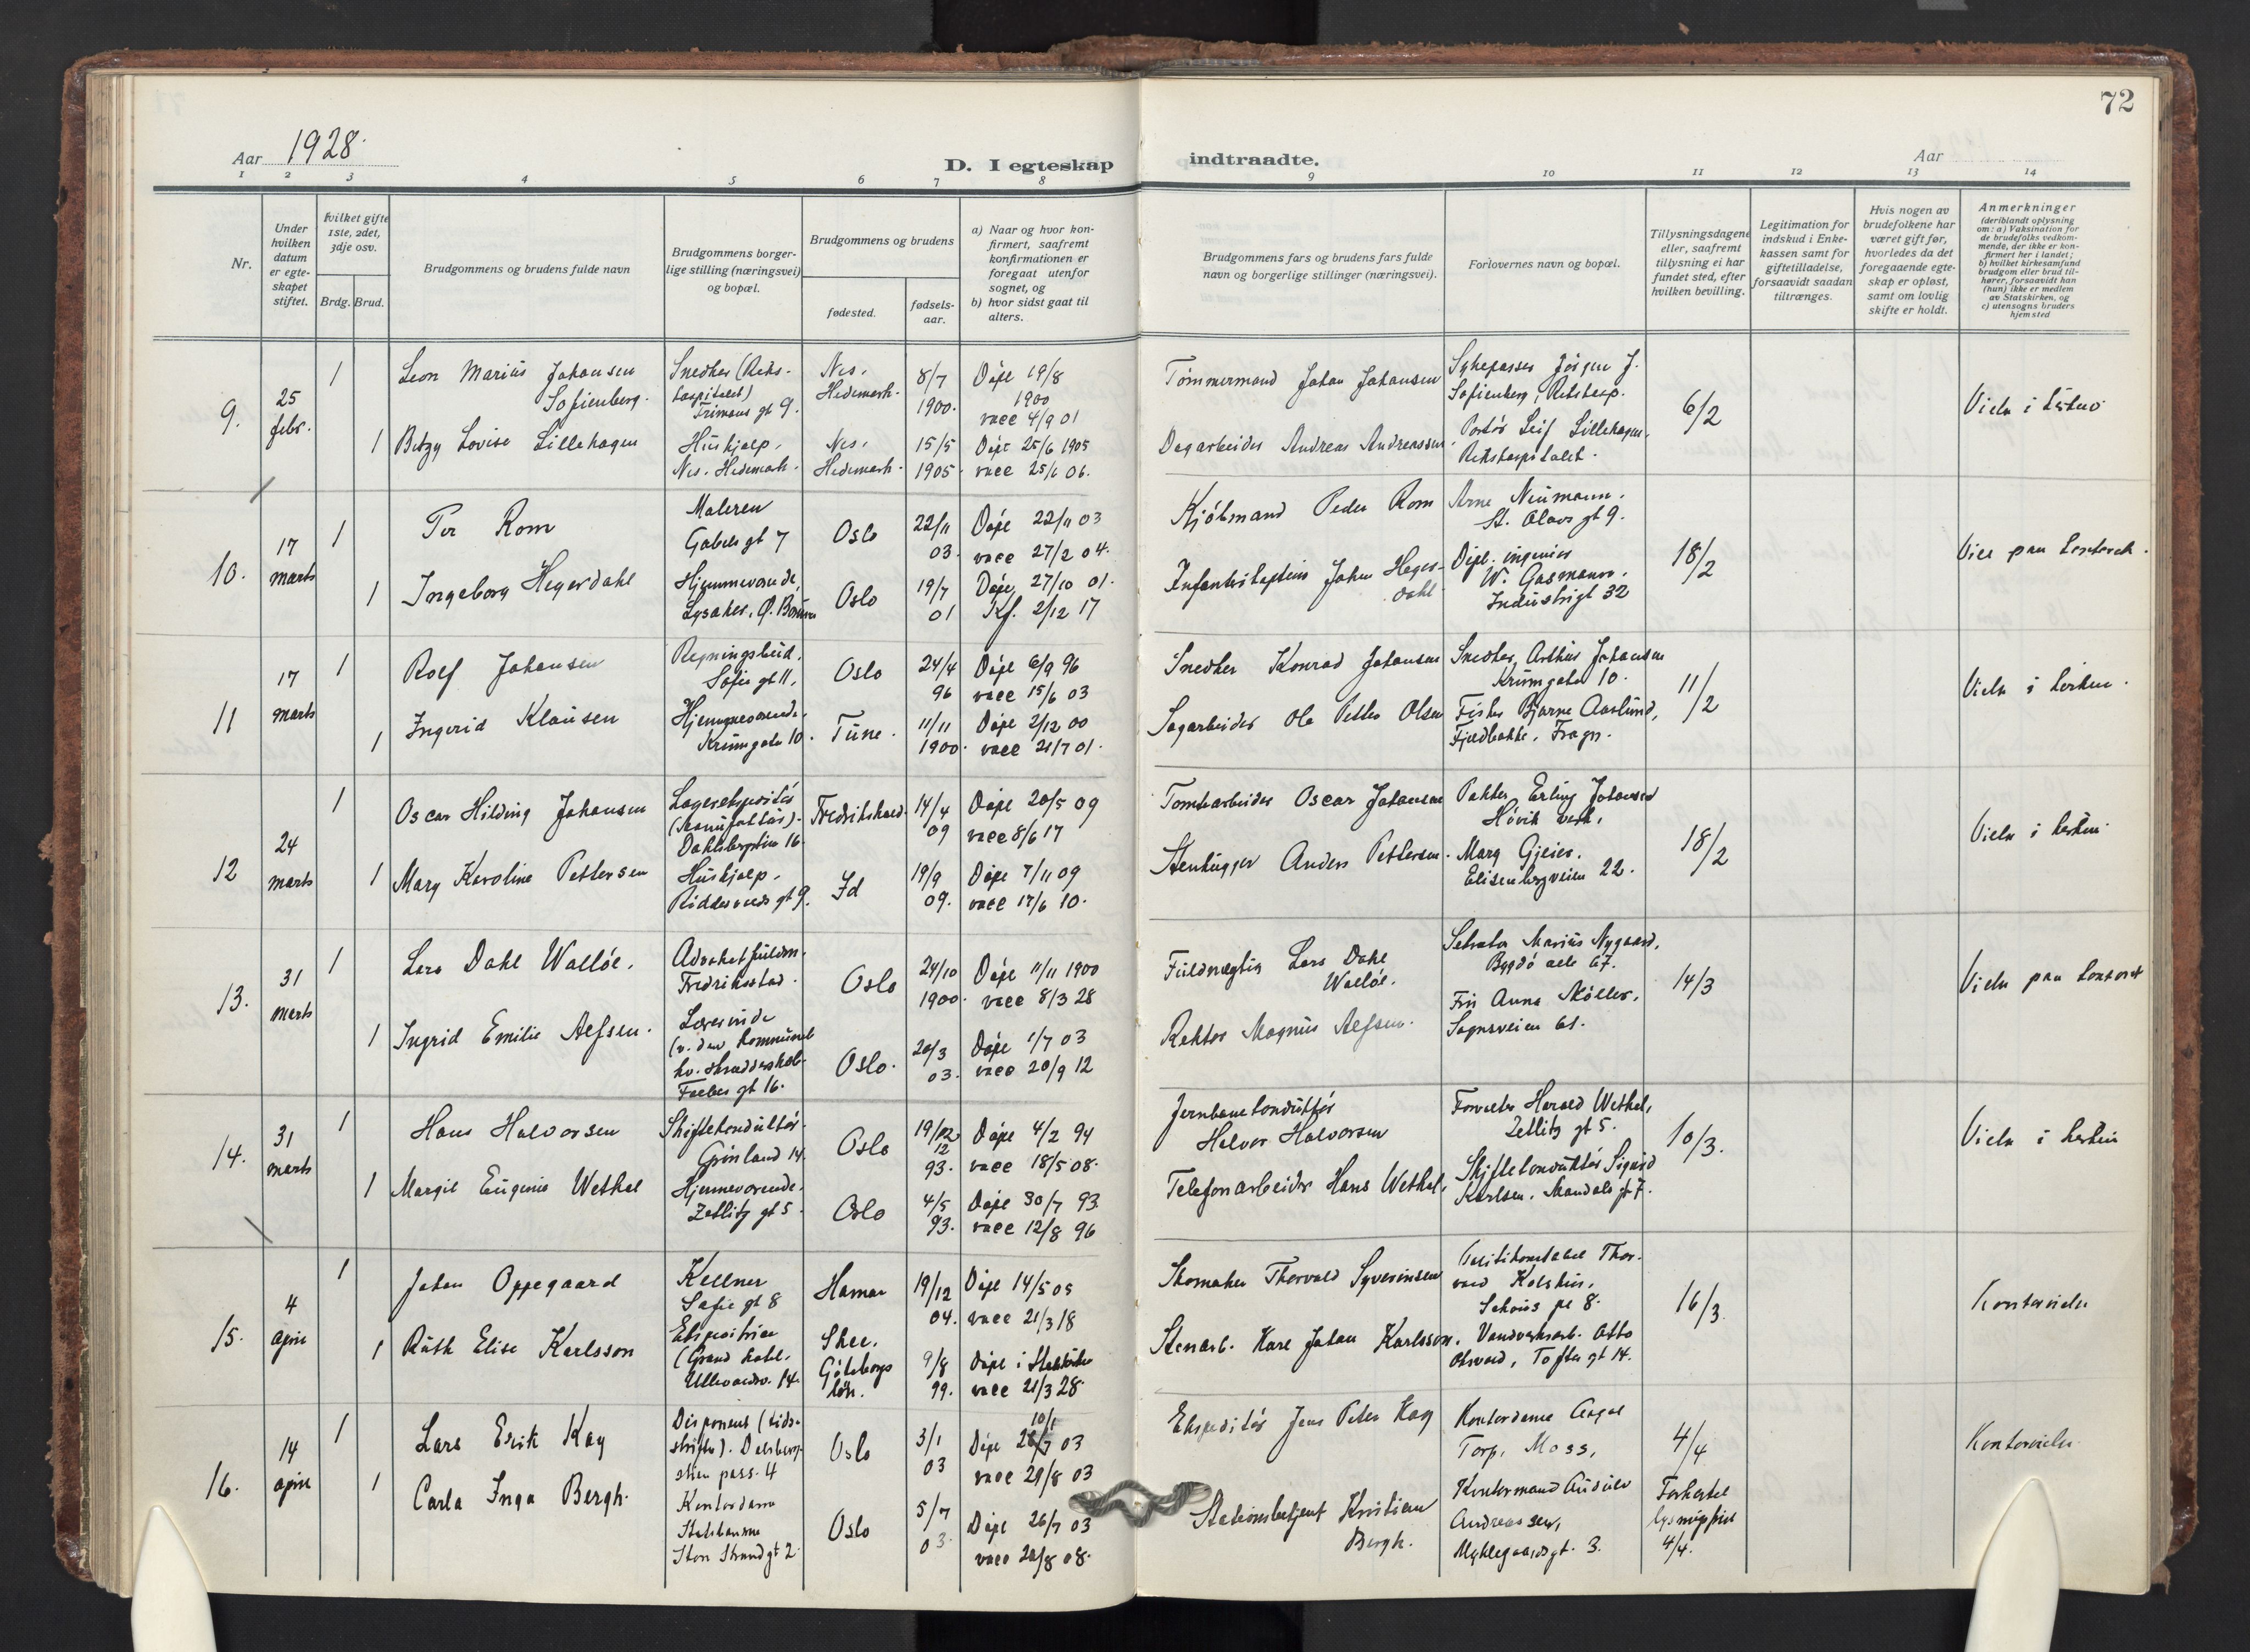 72
Aar 1928.
D. I egteskap indtraadte.
Aar
1 2 3 4 5 6 7 8 9 10 11 12 13 14
Nr.
Under hvilken datum er egteskapet stiftet.
Hvilket gifte 1ste, 2det, 3dje osv.
Brdg. Brud.
Brudgommens og brudens fulde navn
Brudgommens borgerlige stilling (næringsvei) og bopæl.
Brudgommens og brudens
fødested.
fødselsaar.
a) Naar og hvor konfirmert, saafremt konfirmationen er foregaat utenfor sognet, og
b) hvor sidst gaat til alters.
Brudgommens fars og brudens fars fulde navn og borgerlige stillinger (næringsvei).
Forlovernes navn og bopæl.
Tillysningsdagene eller, saafremt tillysning ei har fundet sted, efter hvilken bevilling.
Legitimation for indskud i Enkekassen samt for giftetilladelse, forsaavidt saadan tiltrænges.
Hvis nogen av brudefolkene har været gift før, hvorledes da det foregaaende egteskap er opløst, samt om lovlig skifte er holdt.
Anmerkninger
(deriblandt oplysning om: a) Vaksination for de brudefolks vedkommende, der ikke er konfirmert her i landet; b) hvilket kirkesamfund brudgom eller brud tilhører, forsaavidt han (hun) ikke er medlem av Statskirken, og c) utensogns bruders hjemsted
9.
25 febr.
1
Leon Marius Johansen Sofienberg.
Snedker (Rikshospitalet)
gt 9.
Nes, Hedemark.
8/7 1900.
Døpt 19/8 1900
vacc 4/9 01
Tømmermand Johan Johansen
Sykepasser Jørgen J. Sofienberg, Rikshosp.
6/2
Vielse i kirken
1
Betzy Lovise Lillehagen
Hushjelp, Nes. Hedemark.
Nes, Hedemark.
15/5 1905.
Døpt 25/6 1905
vacc 25/6 06.
Dagarbeider Andreas Andreassen
Portør Leif Lillehagen, Rikshospitalet.
10.
17 marts
1
Per Rom
Maleren
Gabels gt 7
Oslo
22/11 03.
Døpt 22/11 03
vacc 27/2 04.
Kjøbmand Peder Rom
Arne Neumann.
St. Olavs gt 9.
18/2
Viels paa kontoret.
1
Ingeborg Hegerdahl
Hjemmeværende,
Lysaker, Ø. Bærum
Oslo
19/7 01
Døpt 27/10 01.
Kf. 2/12 17
Infanterikaptein John Hegerdahl
Dipl. ingeniør W. Gasmann.
Industrigt 32
11
17 marts
1
Rolf Johansen
Sofie gt 11.
Oslo
24/4 96
Døpt 6/9 96
vacc 15/6 03
Snedker Konrad Johansen
Snedker Arthur Johansen
Krumgata 10.
11/2
Viels i kirken.
1
Ingerid Klausen
Hjemmeværende.
Krumgata 10.
Tune.
11/11 1900.
Døpt 2/12 00
vacc 21/7 01.
Sagarbeider Ole Petter Olsen
Fisker Bjarne Aaslund,
Fjeldbakke, Frogn.
12
24 marts
1
Oscar Hilding Johansen
Lagerekspeditør
(manufaktur).
Dahlsbergstien 16.
Fredrikshald.
14/4 09
Døpt 20/5 09
vacc 8/6 17
Tomtearbeider Oscar Johansen
Pakker Erling Johansen
Høvik verk,
18/2
Viels i kirken.
1
Mary Karoline Pettersen
Hushjelp.
Riddervolds gt 9.
Id
19/9 09.
Døpt 7/11 09
vacc 17/6 10.
Stenhugger Anders Pettersen.
Mary Gjeier.
Elisenbergveien 22.
13.
31 marts
1
Lars Dahl Walløe.
Advokatfuldm.
Fredriksstad.
Oslo
24/10 1900.
Døpt 11/11 1900
vacc 8/3 28
Fuldmægtig Lars Dahl Walløe.
Sekretær Marius Nygaard,
Bygdø alle 67.
14/3
Viels paa kontoret
1
Ingrid Emilie Alfsen.
Lærerinde
(v. den kommunale
kv. skrædderskole
Falbes gt 16.
Oslo.
20/3 03.
Døpt 1/7 03
vacc 20/9 12
Rektor Magnus Alfsen.
Fru Anna Møller,
Sognsveien 61.
14.
31 marts
1
Hans Halvorsen
Skiftekonduktør
Grønland 14.
Oslo
19/12 12 93.
Døpt 4/2 94
vacc 18/5 08.
Jernbanekonduktør
Halvor Halvorsen
Forvalter Harald Wethal,
Zetlitz gt 5.
10/3.
Viels i kirken
1
Margit Eugenie Wethal
Hjemmeværende.
Zetlitz gt 5.
Oslo
4/5 93.
Døpt 30/7 93.
vacc 12/8 96
Telefonarbeider Hans Wethal,
Skiftekonduktør Sigurd
Karlsen, Mandals gt 7.
15.
4 april
1
Johan Oppegaard
Kellner
Sofie gt 8
Hamar
19/12 04.
Døpt 14/5 05
vacc 21/3 18
Skomaker Thorvald Syverinsen
Politikonstabel Thorvald
Schous pl 8.
16/3.
Kontorvielse
1
Ruth Elise Karlsson
Ekspeditrice
(Grand hotel.
Ullevaalsv. 14.
Skee,
Göteborgs
län.
9/8 99.
Døpt i
vacc 21/3 28.
Stenarb. Karl Johan Karlsson.
Vandverksarb. Otto
Olsvold, Toftes gt 14.
16.
14 april
1
Lars Erik Kay
Disponent (tidsskrifter). Dalsbergstien pass. 4
Oslo
3/1 03
10/1
Døpt 26/7 03
vacc 29/8 03
Ekspeditør Jens Peter Kay
Kontordame Aagot
Torp, Moss,
4/4
Kontorvielse.
1
Carla Inga Bergh.
Kontordame
Statsbanerne
Store Strandgt 2.
Oslo
5/7 03.
Døpt 26/7 03
vacc 20/8 08.
Stationsbetjent Kristian Bergh.
Kontormand
Andreassen,
Myklegaardsgt. 3.
Forkortet
lysningsfrist
4/4.